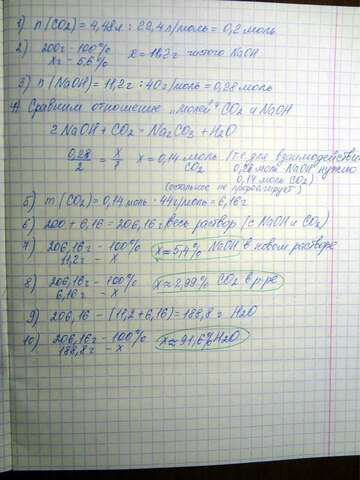 1) n(CO2) = 4,48л : 22,4 л/моль = 0,2 моль
2) 200г - 100%
хг - 5,6%
x = 11,2 г чистого NaOH
3) n(NaOH) = 11,2г : 40г/моль = 0,28 моль
4) Сравним отношение "молей" CO2 и NaOH
2NaOH + CO2 = Na2CO3 + H2O
0,28/2 = X/1 x = 0,14 моль CO2 (т.е. для взаимодействия
0,28 моль NaOH нужно
0,14 моль CO2)
(остальное не прореагирует)
5) m(CO2) = 0,14 моль · 44г/моль = 6,16г
6) 200 + 6,16 = 206,16г весь раствор (с NaOH и CO2)
7) 206,16г - 100%
11,2г - x
x ≈ 5,4% NaOH в новом растворе
8) 206,16г - 100%
6,16г - x
x ≈ 2,99% CO2 в р-ре
9) 206,16 - (11,2 + 6,16) = 188,8 г H2O
10) 206,16г - 100%
188,8г - x
x ≈ 91,6% H2O